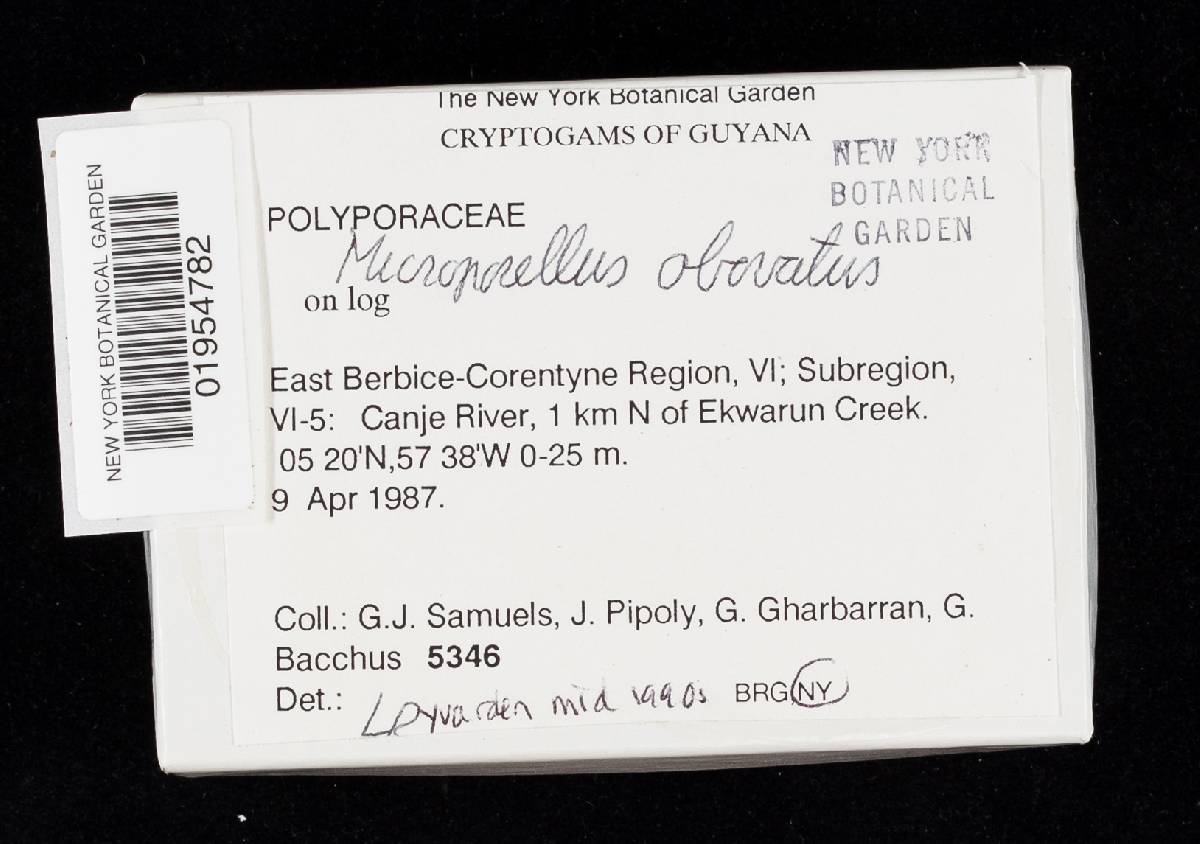 The New York Botanical Garden
CRYPTOGAMS OF GUYANA
NEW YORK
BOTANICAL
GARDEN
POLYPORACEAE
Microporellus obovatus
on log
East Berbice-Corentyne Region, VI; Subregion,
VI-5: Canje River, 1 km N of Ekwarun Creek.
05 20'N,57 38'W 0-25 m.
9 Apr 1987.
Coll.: G.J. Samuels, J. Pipoly, G. Gharbarran, G.
Bacchus 5346
Det.: L Ryvarden mid 1990s BRG, NY
NEW YORK BOTANICAL GARDEN
01954782